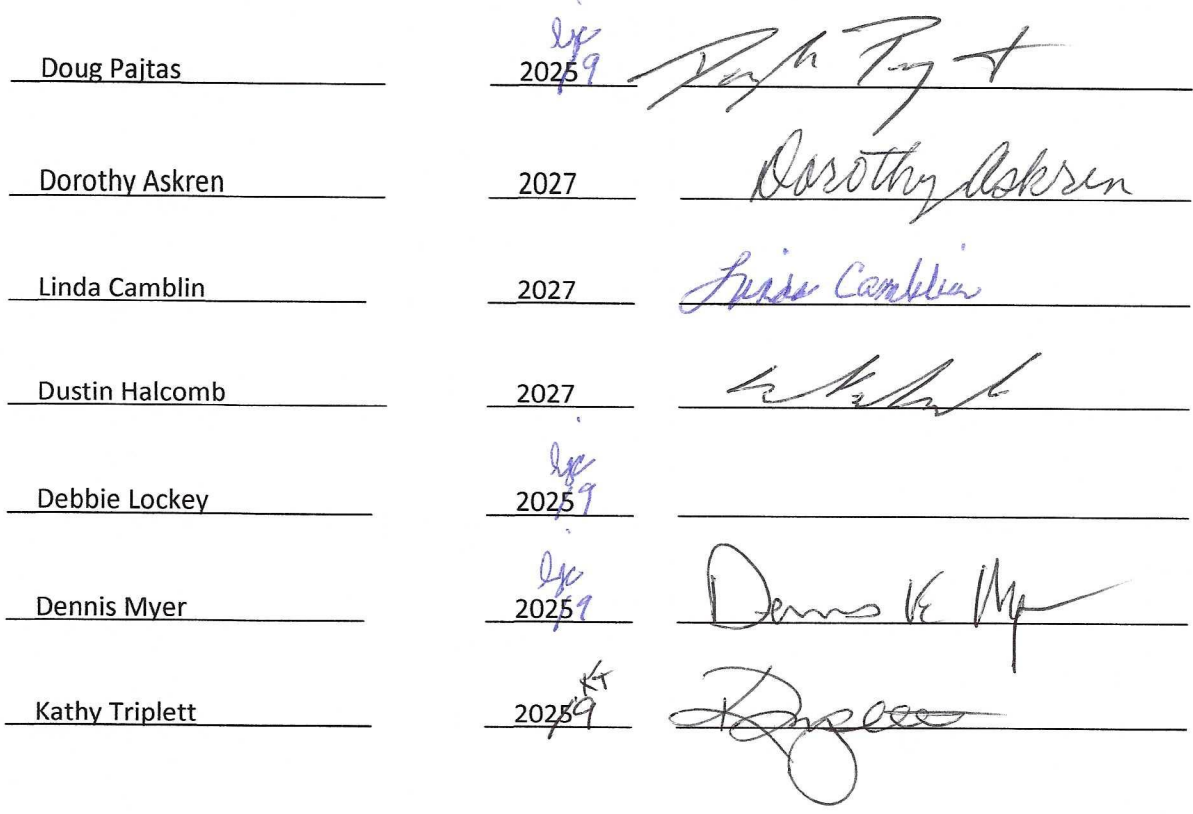 Doug Pajtas 2025 9
Dorothy Askren 2027 Dorothy Askren
Linda Camblin 2027 Linda Camblin
Dustin Halcomb 2027
Debbie Lockey 2025 9
Dennis Myer 2025 9 Dennis K Myer
KT
Kathy Triplett 2025 9